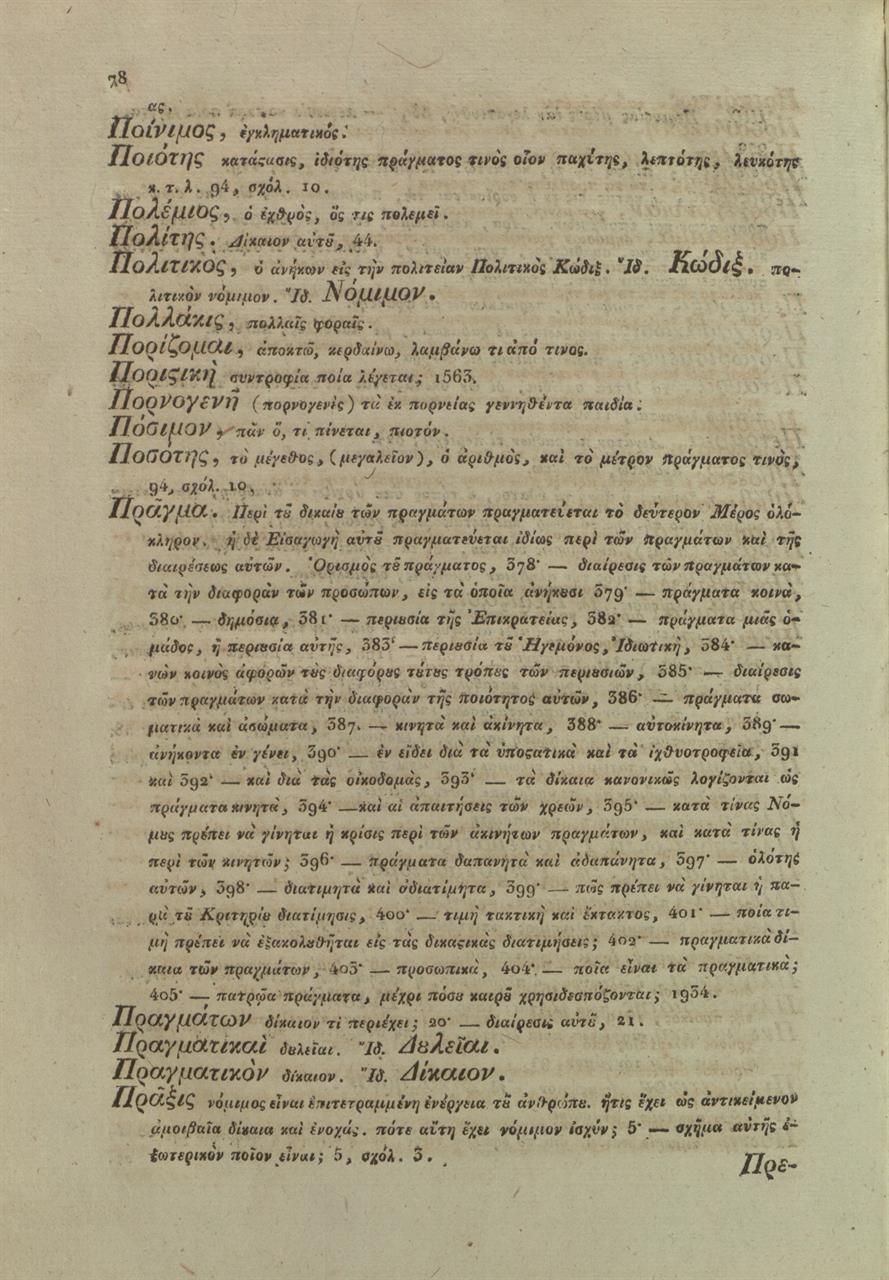 78
ας.
Ποίνιμος, ἐγκληματικός.
Ποιότης κατάϛασις, ἰδιότης πράγματος τινὸς οἷον παχύτης, λεπτότης, λευκότης
κ. τ. λ. 94, σχόλ. 10.
Πολέμιος, ὁ ἐχθρὸς, ὅς τις πολεμεῖ.
Πολίτης. Δίκαιον αὐτȣ͂, 44.
Πολιτικὸς, ὁ ἀνήκων εἰς τὴν πολιτείαν Πολιτικὸς Κώδιξ. Ἴδ. Κώδιξ. πο-
λιτικὸν νόμιμον. Ἴδ. Νόμιμον.
Πολλάκις, πολλαῖς φοραῖς.
Πορίζομαι, ἀποκτῶ, κερδαίνω, λαμβάνω τι ἀπό τινος.
Ποριϛικὴ συντροφία ποία λέγεται; 1563.
Πορνογενῆ (πορνογενὲς) τὰ ἐκ πορνείας γεννηθέντα παιδία.
Πόσιμον, πᾶν ὅ, τι πίνεται, πιοτόν.
Ποσότης, τὸ μέγεθος, (μεγαλεῖον), ὁ ἀριθμὸς, καὶ τὸ μέτρον πράγματος τινὸς,
94, σχόλ. 10.
Πρᾶγμα. Περὶ τȣ͂ δικαίȣ τῶν πραγμάτων πραγματεύεται τὸ δεύτερον Μέρος ὁλό-
κληρον. ἡ δὲ Εἰσαγωγὴ αὐτȣ͂ πραγματεύεται ἰδίως περὶ τῶν πραγμάτων καὶ τῆς
διαιρέσεως αὐτῶν. Ὁρισμὸς τȣ͂ πράγματος, 378· — διαίρεσις τῶν πραγμάτων κα-
τὰ τὴν διαφορὰν τῶν προσώπων, εἰς τὰ ὁποῖα ἀνήκȣσι 379· — πράγματα κοινὰ,
380· — δημόσια, 381· — περιȣσία τῆς Ἐπικρατείας, 382· — πράγματα μιᾶς ὁ-
μάδος, ἢ περιȣσία αὐτῆς, 383· — περιȣσία τȣ͂ Ἡγεμόνος, Ἰδιωτικὴ, 384· — κα-
νὼν κοινὸς ἀφορῶν τȣ̀ς διαφόρȣς τȣ́τȣς τρόπȣς τῶν περιȣσιῶν, 385· — διαίρεσις
τῶν πραγμάτων κατὰ τὴν διαφορὰν τῆς ποιότητος αὐτῶν, 386· — πράγματα σω-
ματικὰ καὶ ἀσώματα, 387. — κινητὰ καὶ ἀκίνητα, 388· — αὐτοκίνητα, 389· —
ἀνήκοντα ἐν γένει, 390· — ἐν εἴδει διὰ τὰ ὑποϛατικὰ καὶ τὰ ἰχθυοτροφεῖα, 391
καὶ 392· — καὶ διὰ τὰς οἰκοδομὰς, 393· — τὰ δίκαια κανονικῶς λογίζονται ὡς
πράγματα κινητὰ, 394· — καὶ αἱ ἀπαιτήσεις τῶν χρεῶν, 395· — κατὰ τίνας Νό-
μȣς πρέπει νὰ γίνηται ἡ κρίσις περὶ τῶν ἀκινήτων πραγμάτων, καὶ κατὰ τίνας ἡ
περὶ τῶν κινητῶν; 396· — πράγματα δαπανητὰ καὶ ἀδαπάνητα, 397· — ὁλότης
αὐτῶν, 398· — διατιμητὰ καὶ ἀδιατίμητα, 399· — πῶς πρέπει νὰ γίνηται ἡ πα-
ρὰ τȣ͂ Κριτηρίȣ διατίμησις, 400· — τιμὴ τακτικὴ καὶ ἔκτακτος, 401· — ποία τι-
μὴ πρέπει νὰ ἐξακολȣθῆται εἰς τὰς δικαϛικὰς διατιμήσεις; 402· — πραγματικὰ δί-
καια τῶν πραγμάτων, 403· — προσωπικὰ, 404· — ποῖα εἶναι τὰ πραγματικά;
405· — πατρῷα πράγματα, μέχρι πόσȣ καιρȣ͂ χρησιδεσπόζονται; 1934.
Πραγμάτων δίκαιον τί περιέχει; 20· — διαίρεσις αὐτȣ͂, 21.
Πραγματικαὶ δȣλεῖαι. Ἴδ. Δȣλεῖαι.
Πραγματικὸν δίκαιον. Ἴδ. Δίκαιον.
Πρᾶξις νόμιμος εἶναι ἐπιτετραμμένη ἐνέργεια τȣ͂ ἀνθρώπȣ. ἥτις ἔχει ὡς ἀντικείμενον
ἀμοιβαῖα δίκαια καὶ ἐνοχάς. πότε αὕτη ἔχει νόμιμον ἰσχύν; 5· — σχῆμα αὐτῆς ἐ-
ξωτερικὸν ποῖον εἶναι; 5, σχόλ. 3.
Πρε-